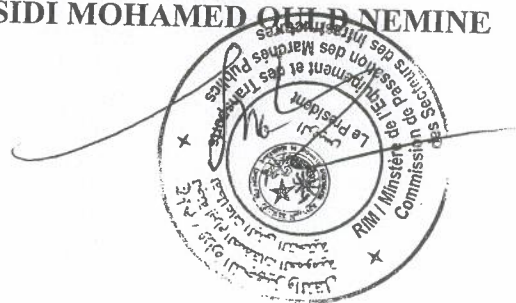 SIDI MOHAMED OULD NEMINE
RIM / Minstère de l'Equipement et des Transports
Commission de Passation des Marchés Publics
des Secteurs des Infrastructures
Le Président
الرئيس